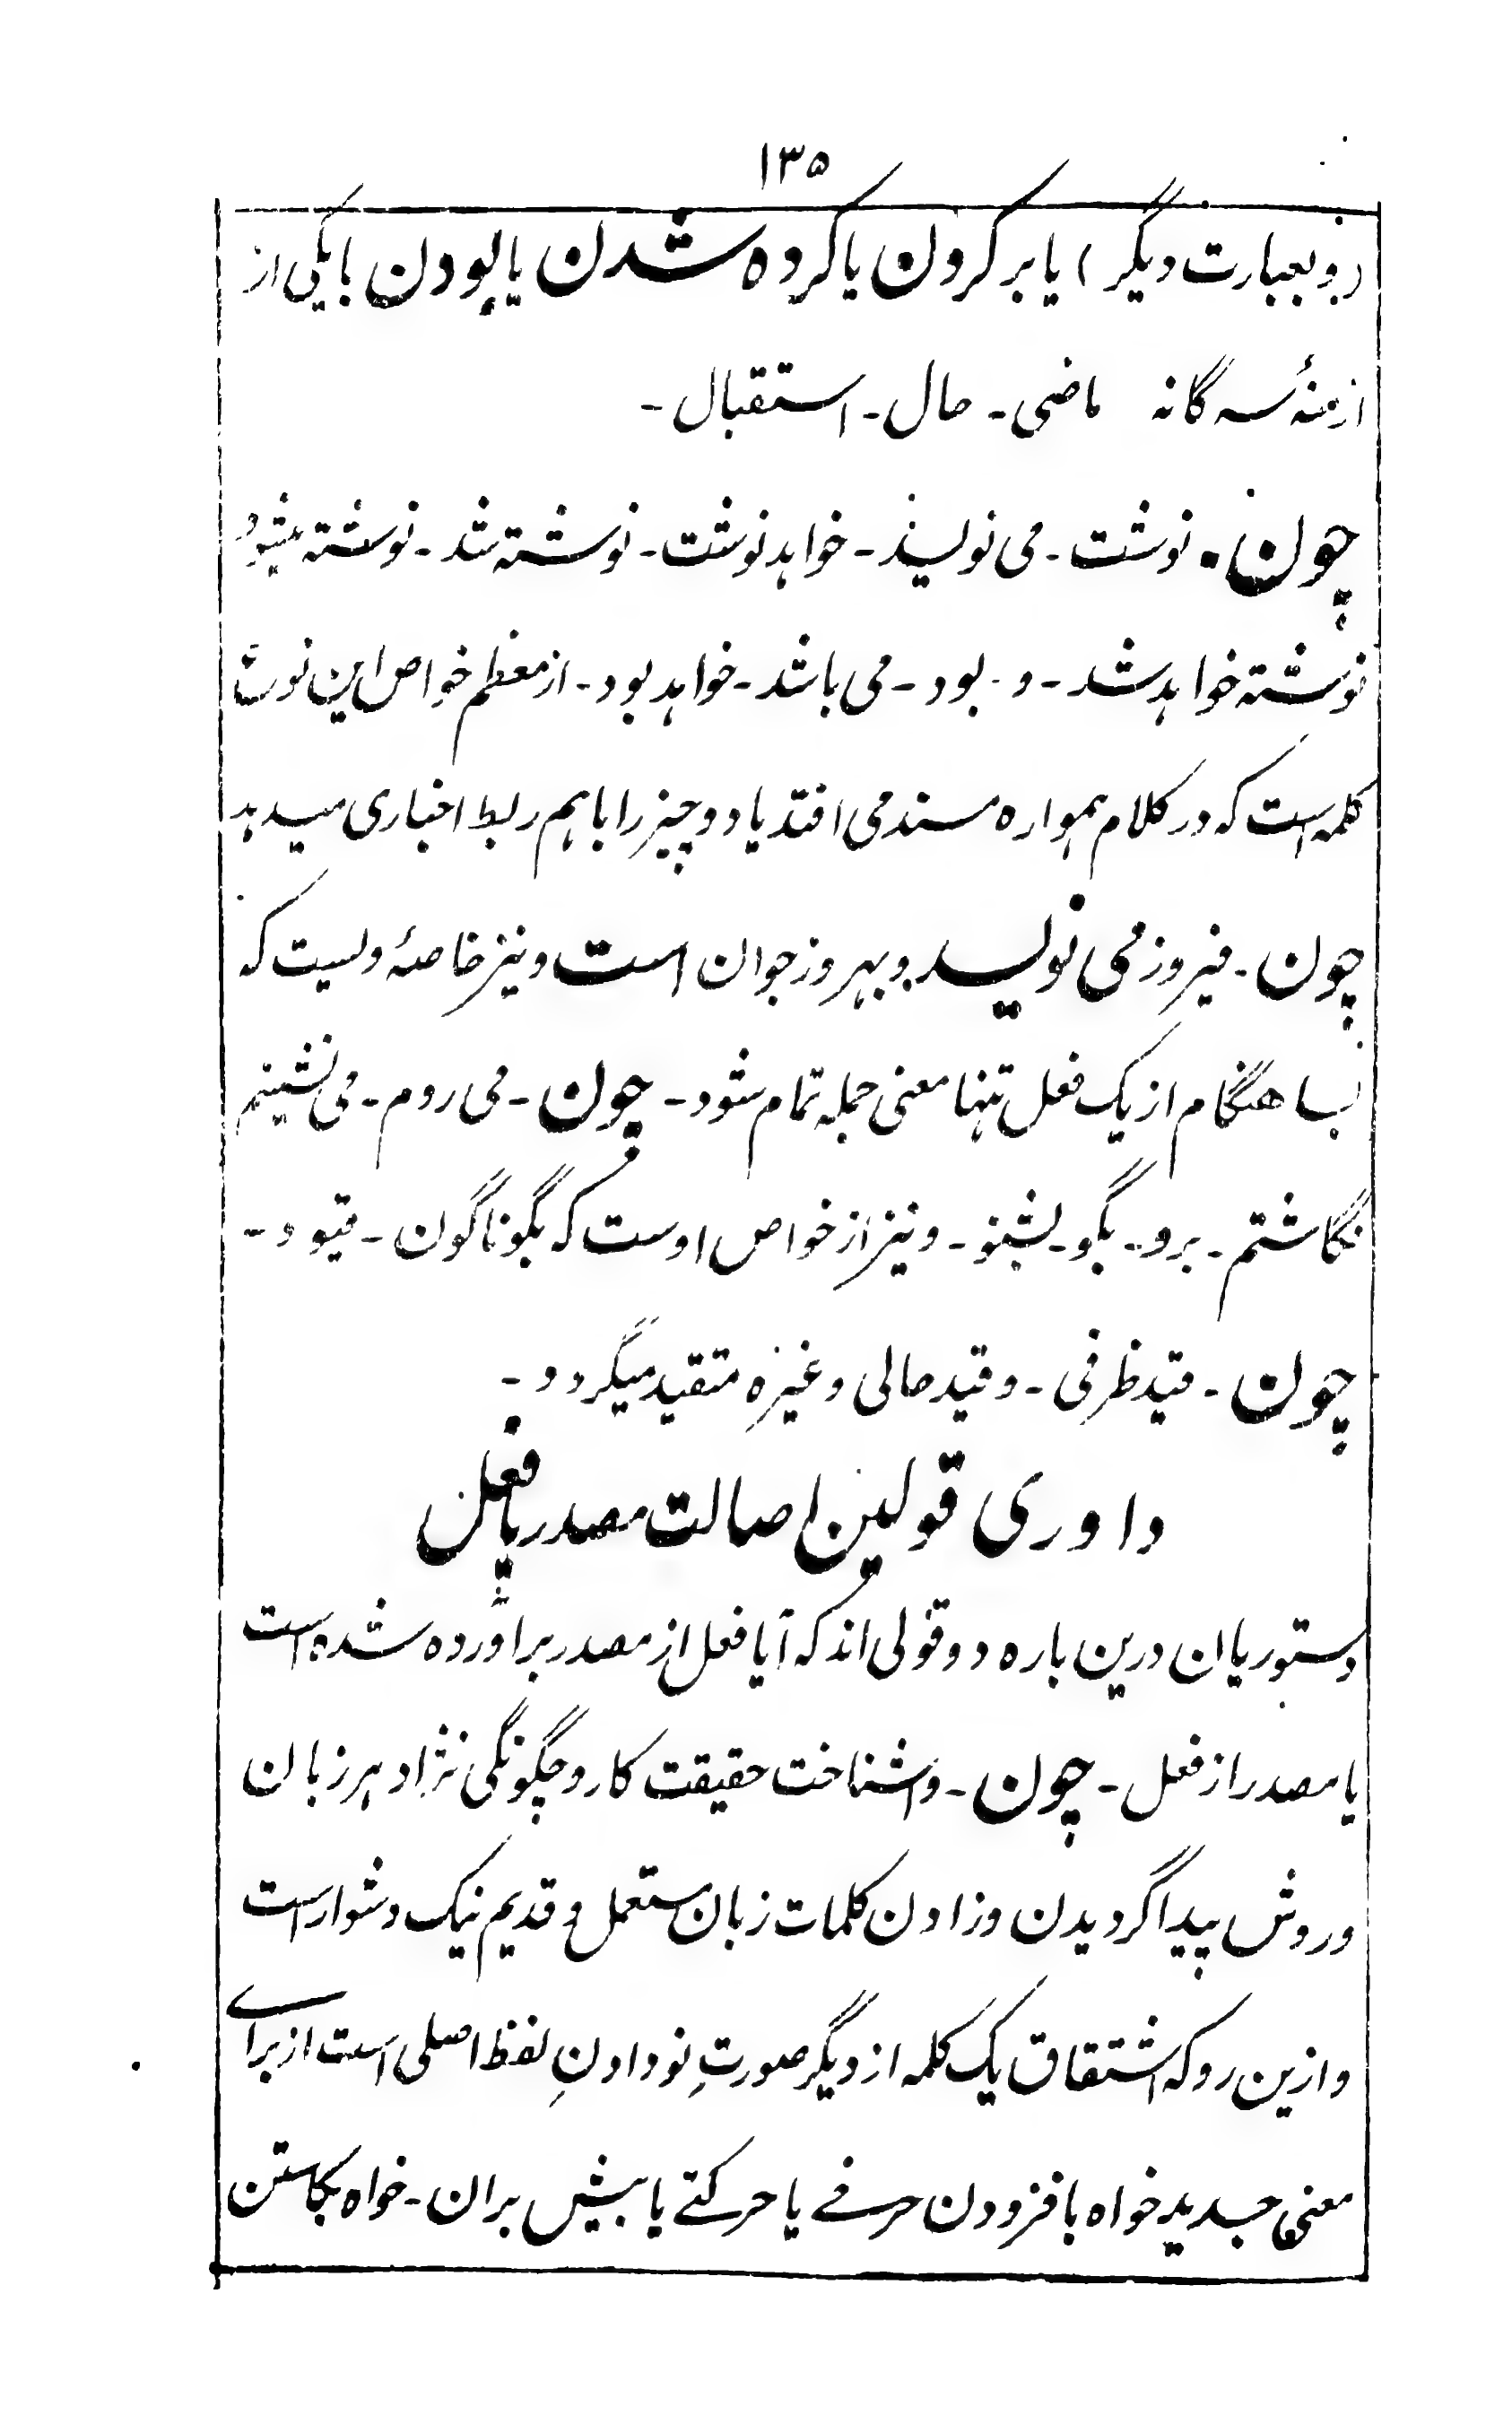 ۱۳۵
(و بعبارت دیگر) یا بر کردن یا کرده شدن یا بودن با یکی از
ازمنۂ سه گانه ماضی - حال - استقبال -
چون - نوشت - می نویسد - خواهد نوشت - نوشته شد - نوشته میشود
نوشته خواهد شد - و - بود - می باشد - خواهد بود - از معظم خواص این نوع
کلمه است که در کلام همواره مسند می افتد یا دو چیز را باهم ربط اخباری میدهد
چون - فیروز می نویسد و بهروز جوان است و نیز خاصۂ ویست که
بسا هنگام از یک فعل تنها معنی جمله تمام شود - چون - می روم - می نشینم
نگاشتم - برو - بگو - بشنو - و نیز از خواص اوست که بگوناگون - قیود -
چون - قید ظرفی - و قید حالی و غیره متقید میگردد -
داوری قولین اصالت مصدر یا فعل
دستوریان درین باره دو قولی اند که آیا فعل از مصدر برآورده شده است
یا مصدر از فعل - چون - و اشناخت حقیقت کار و چگونگی نژاد هر زبان
و روش پیدا گردیدن و زادن کلمات زبان مستعمل و قدیم نیک دشوار است
و ازین رو که اشتقاق یک کلمه از دیگر صورتِ نو دادنِ لفظ اصلی است از برای
معنی جدید خواه بافزودن حرفے یا حرکتے یا بیش بران - خواه بکاستن